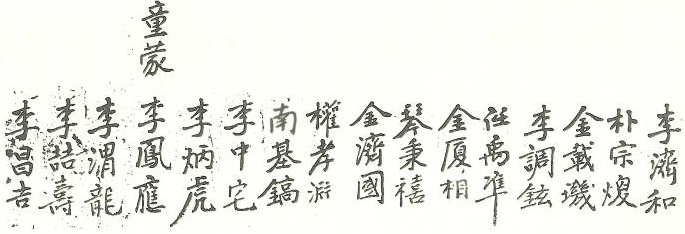 李濟和
朴宗煥
金載璣
李調鉉
任禹準
金厦相
琴秉禧
金濟國
權孝淵
南基鎬
李中宅
李炳虎
童蒙
李鳳應
李渭龍
李喆壽
李昌吉